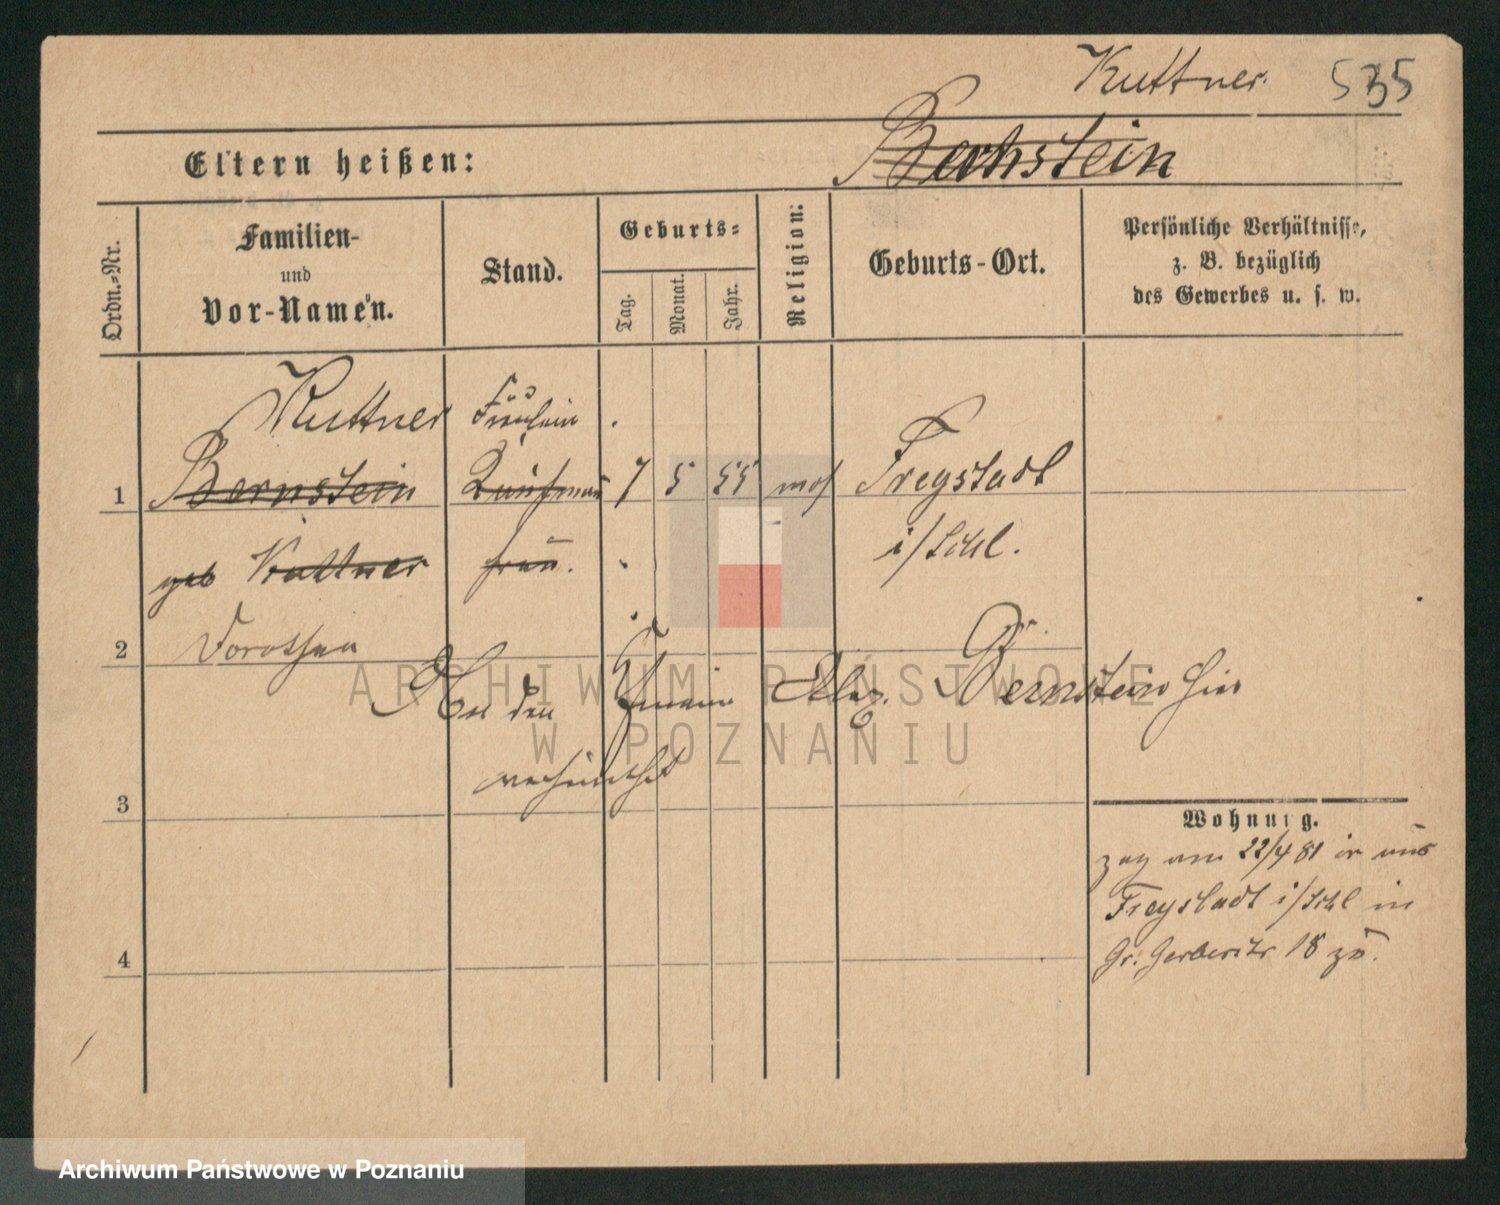 Kuttner. 535
Bernstein
Eltern heißen:
Ordn.-Nr.
Familien-
und
Vor-Namen.
Stand.
Geburts-
Tag.
Monat.
Jahr.
Religion:
Geburts-Ort.
Persönliche Verhältnisse,
z. B. bezüglich
des Gewerbes u. s. w.
Kuttner Fräulein
1 Bernstein Kaufmann 7 5 55 mos Freystadt
geb Kuttner frau. i/Schl.
2 Dorothea
An den Bernstein hier
verheirathet
3
Wohnung.
zog am 22/4 81 aus
Freystadt i/Schl in
Gr. Gerberstr 18 zu.
4
ARCHIWUM PAŃSTWOWE
W POZNANIU
Archiwum Państwowe w Poznaniu